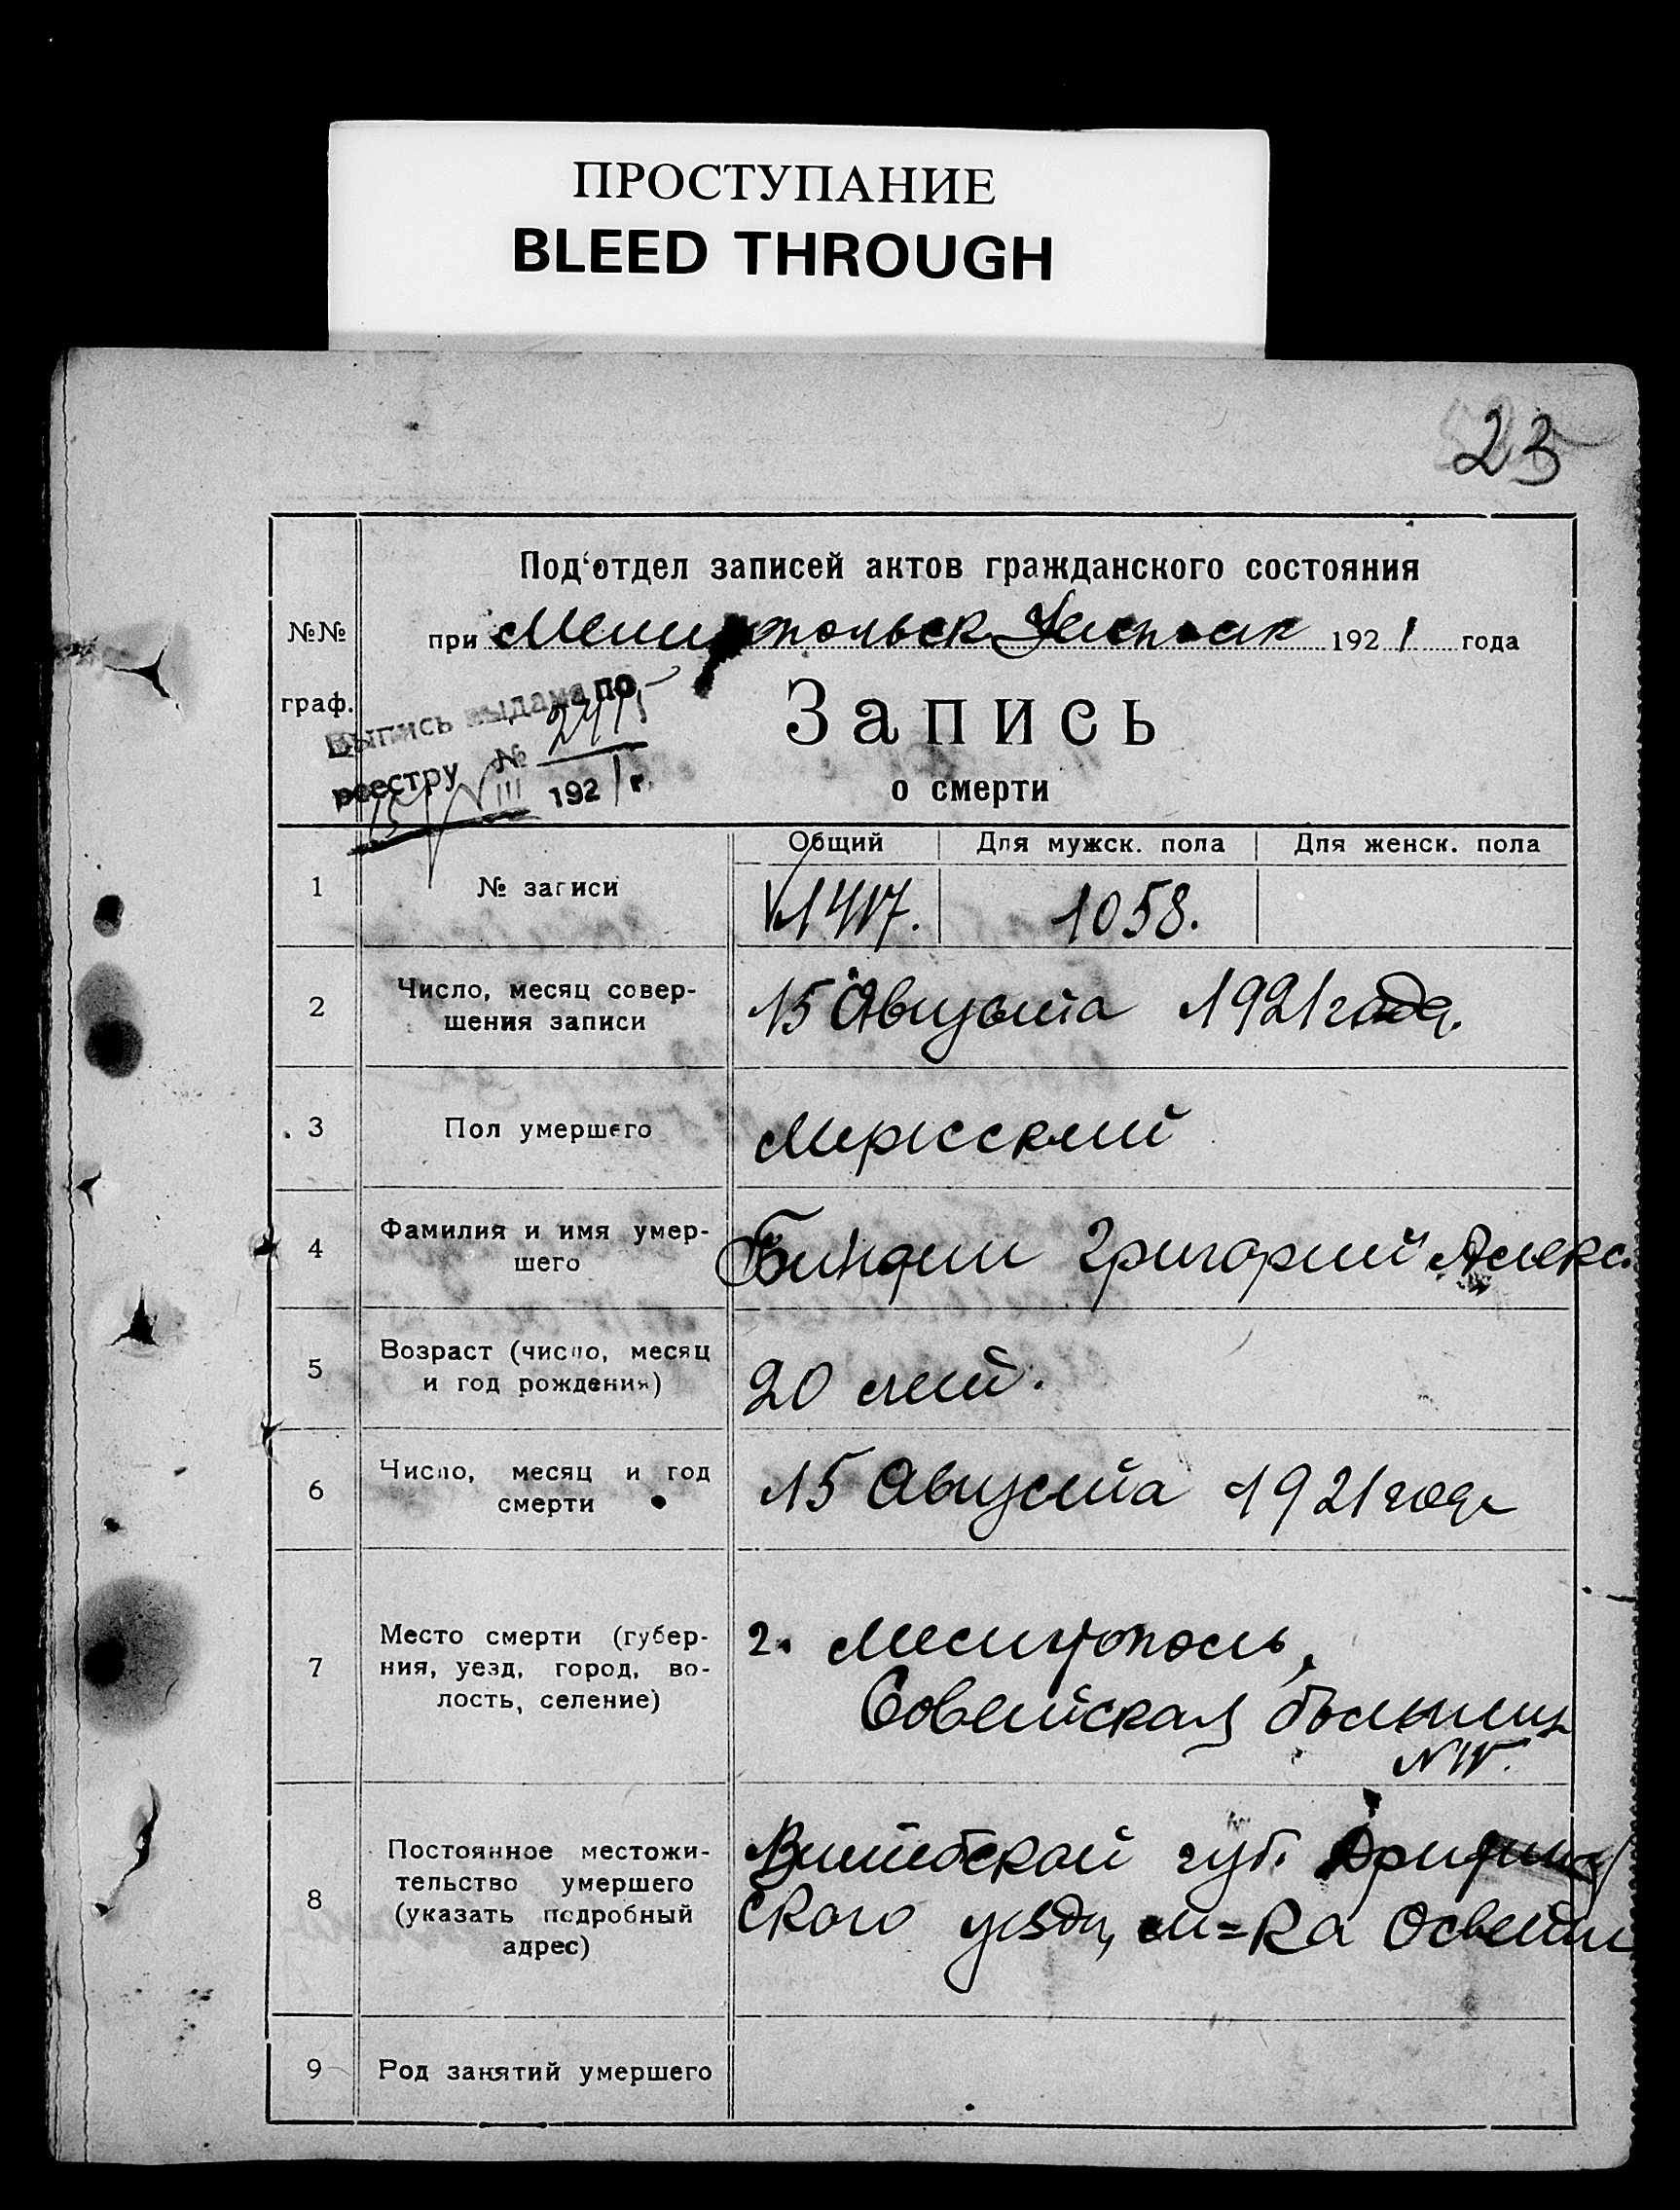 ПРОСТУПАНИЕ
BLEED THROUGH
23
Под'отдел записей актов гражданского состояния
№№
граф.
при Мелитопольск. 1921 года
Выпись выдана по
реестру №
15/VIII 1921 г.
Запись
о смерти
Общий Для мужск. пола Для женск. пола
1 № записи 1417. 1058.
2 Число, месяц совер-
шения записи
15 Августа 1921 года.
3 Пол умершего Мужской
4 Фамилия и имя умер-
шего
Григорий Алекс.
5 Возраст (число, месяц
и год рождения)
20 лет.
6 Число, месяц и год
смерти
15 Августа 1921 года
7 Место смерти (губер-
ния, уезд, город, во-
лость, селение)
г. Мелитополь,
Советская больниц
8 Постоянное местожи-
тельство умершего
(указать подробный
адрес)
Витебской губ.
ского уезда, м=ка Освеи
9 Род занятий умершего